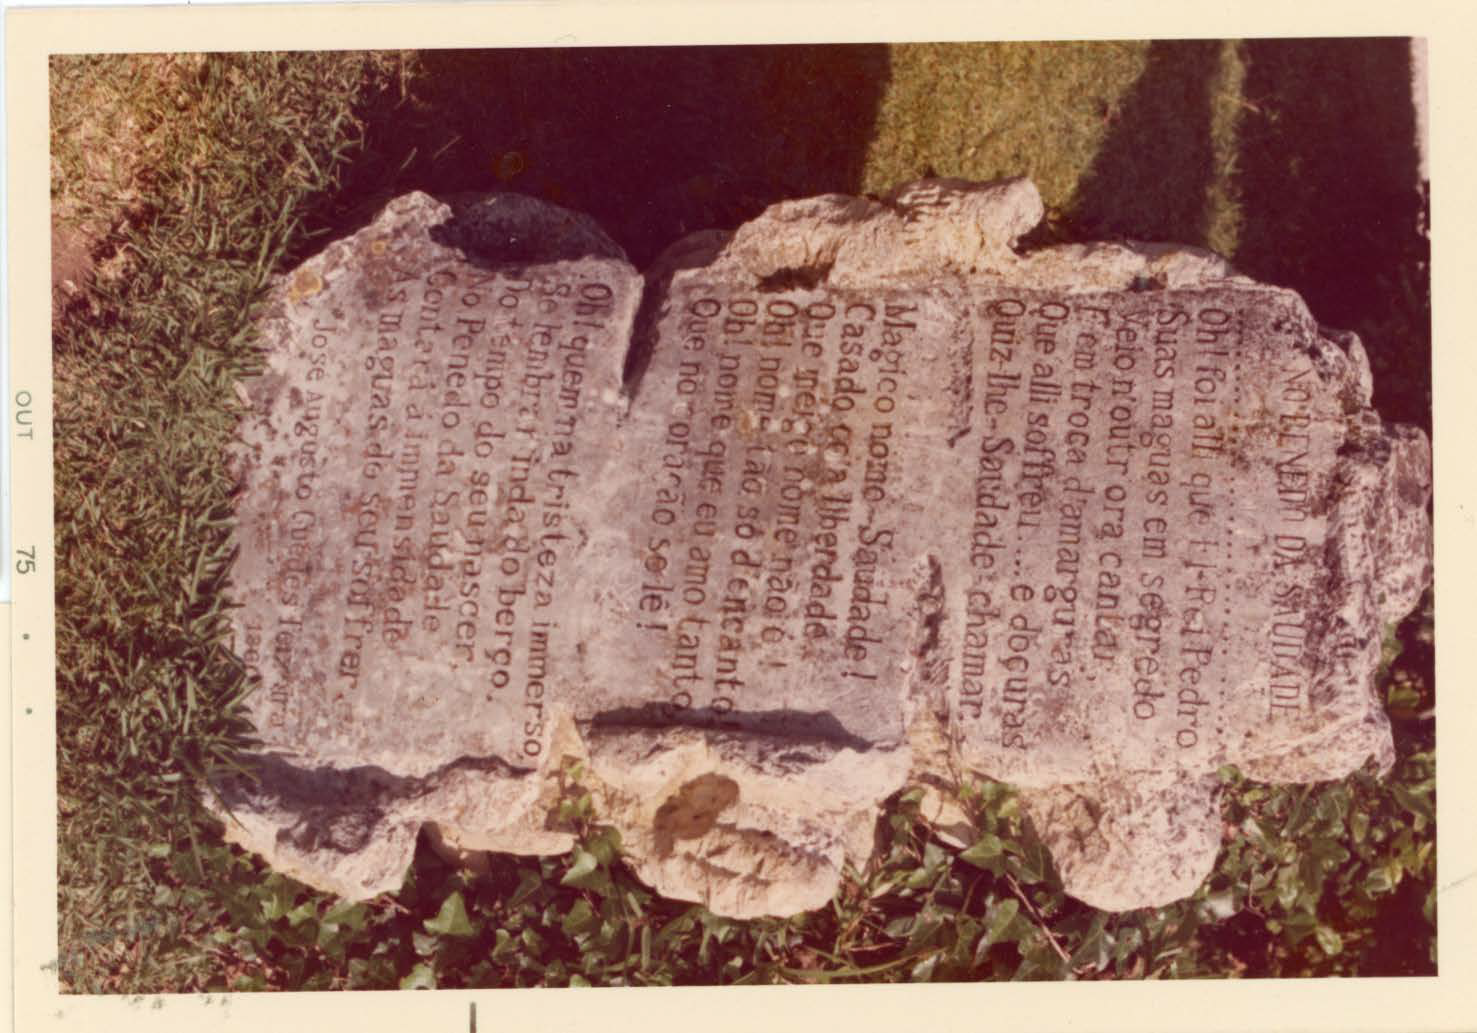 NO PENEDO DA SAUDADE
Oh! foi alli que El-Rei Pedro
Suas maguas em segredo
Veio n'outr'ora cantar
E em troca d'amarguras
Que alli soffreu.... e doçuras
Quiz-lhe-Saudade-chamar.
Magico nome-Saudade!
Casado co'a liberdade
Que meigo nome não é!
Oh! nome não é!
Oh! nome tão só d'encanto
Oh! nome que eu amo tanto
Que no coração se lê!
Oh! quem na tristeza immerso
Se lembrar inda do berço,
Do tempo do seu nascer,
No Penedo da Saudade
Contará á immensidade
As maguas do seu soffrer.
José Augusto Guedes Teixeira
OUT 75